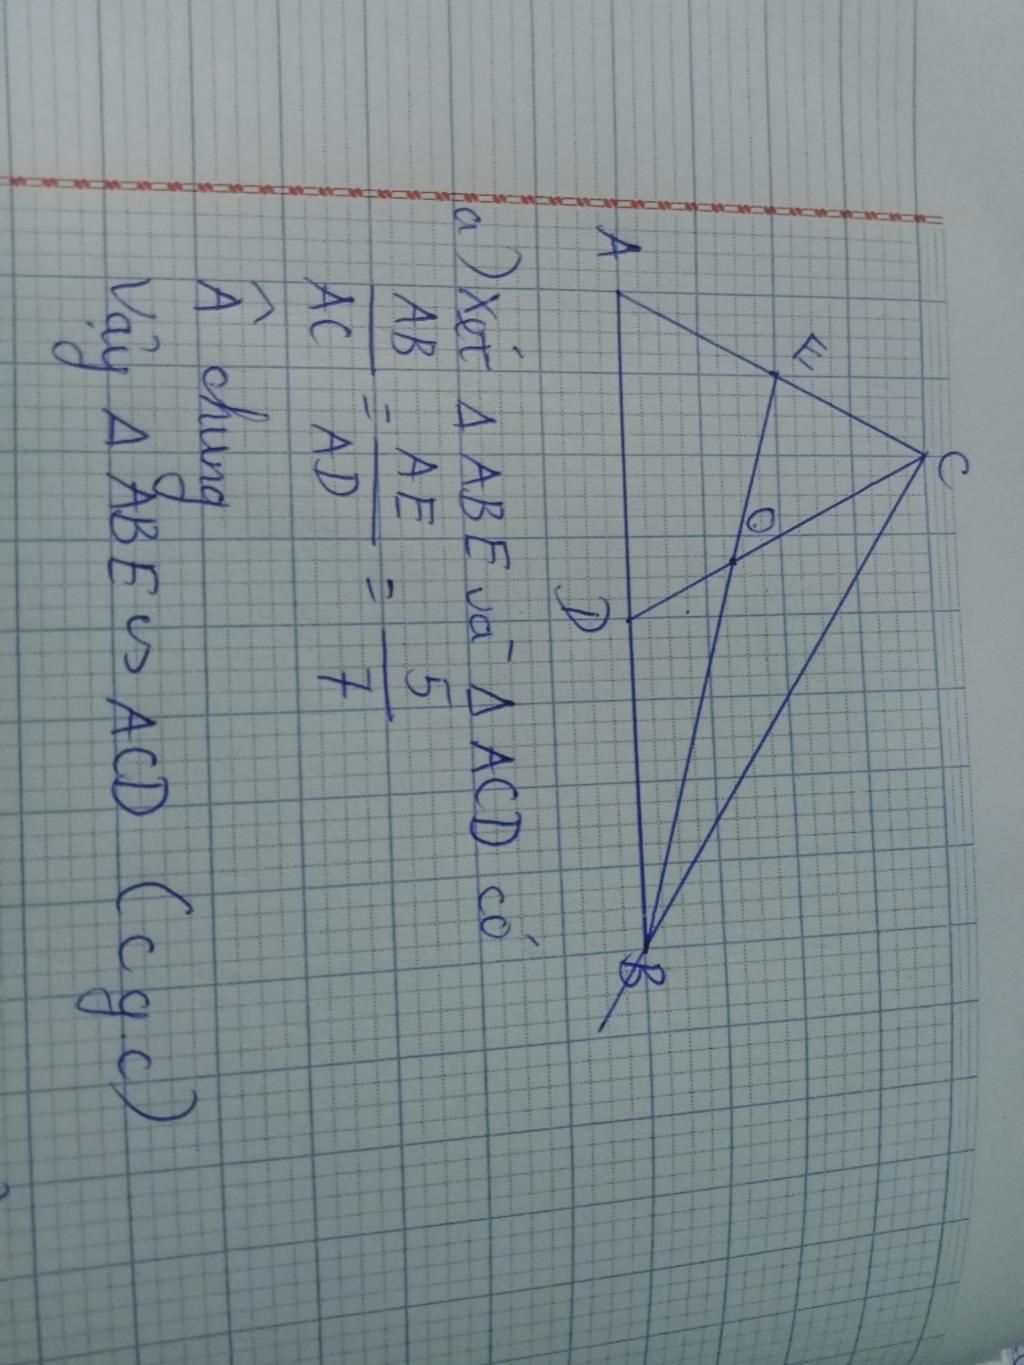 C
E
O
A
D
B
a) Xét Δ ABE và Δ ACD có
AB/AC = AE/AD = 5/7
Â chung
Vậy Δ ABE ∽ ACD (c.g.c)